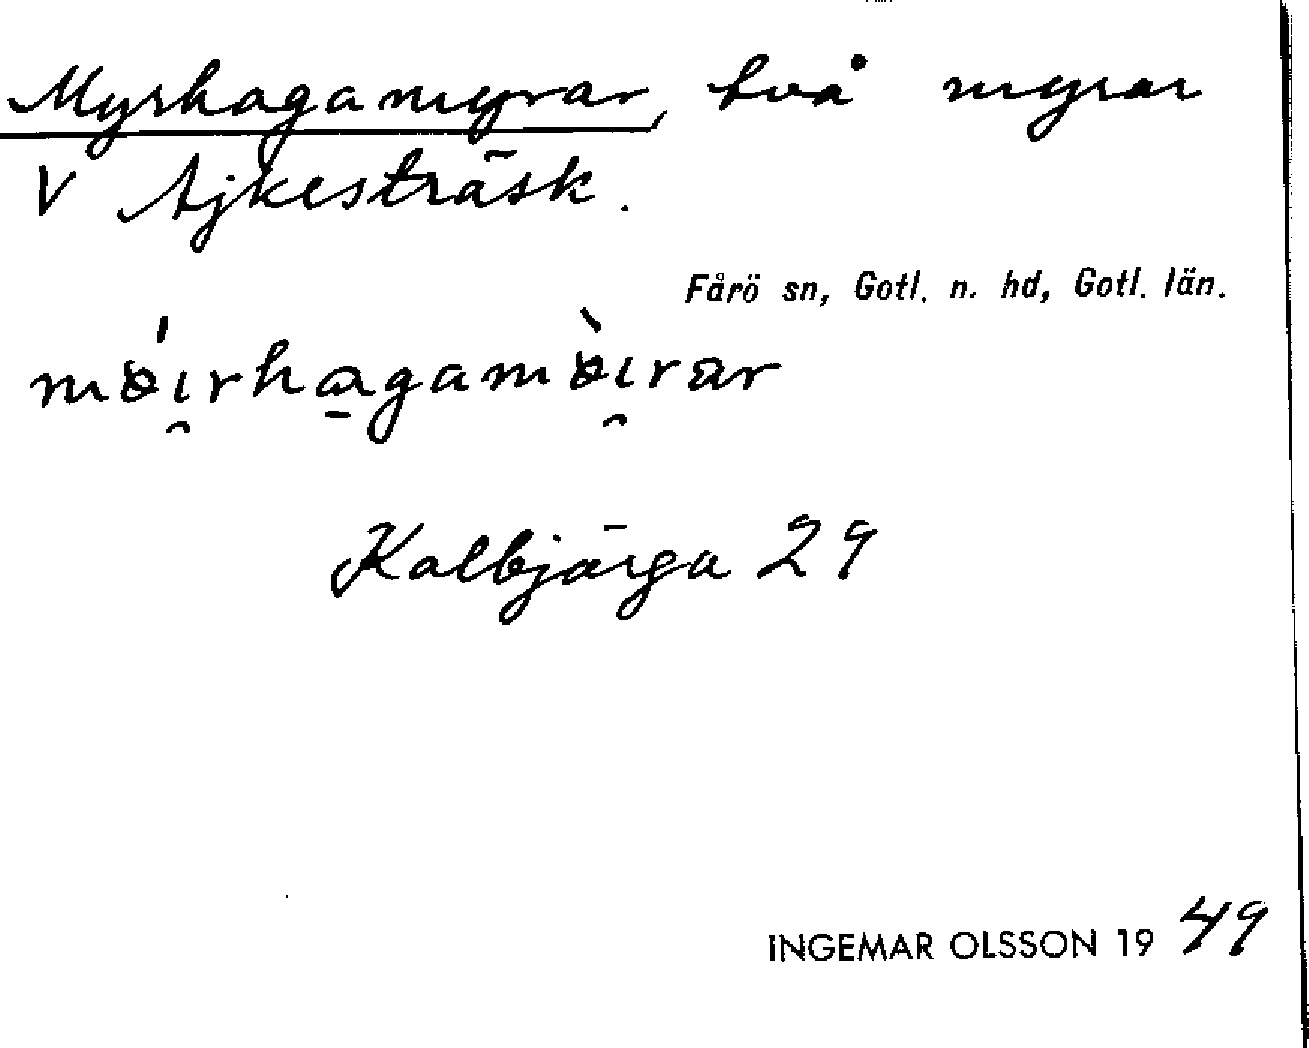 Myrhagamyrar, två myrar
V Ajkesträsk.
Fårö sn, Gotl. n. hd, Gotl. län.
Kalbjärga 29
INGEMAR OLSSON 1949